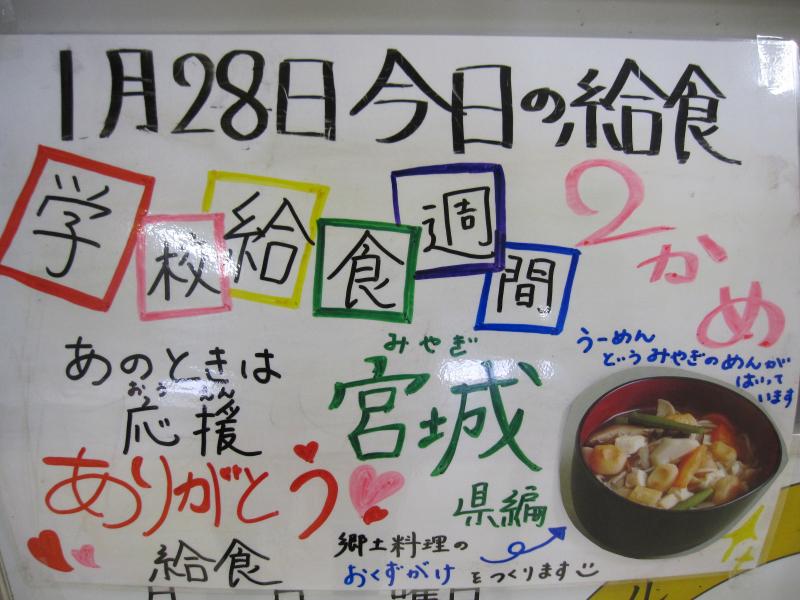 1月28日今日の給食
学校給食週間
2かめ
あのときは
おうえん
応援
ありがとう
給食
みやぎ
宮城
県編
うーめん
というみやぎのめんが
はいって
います
郷土料理の
おくずがけをつくります